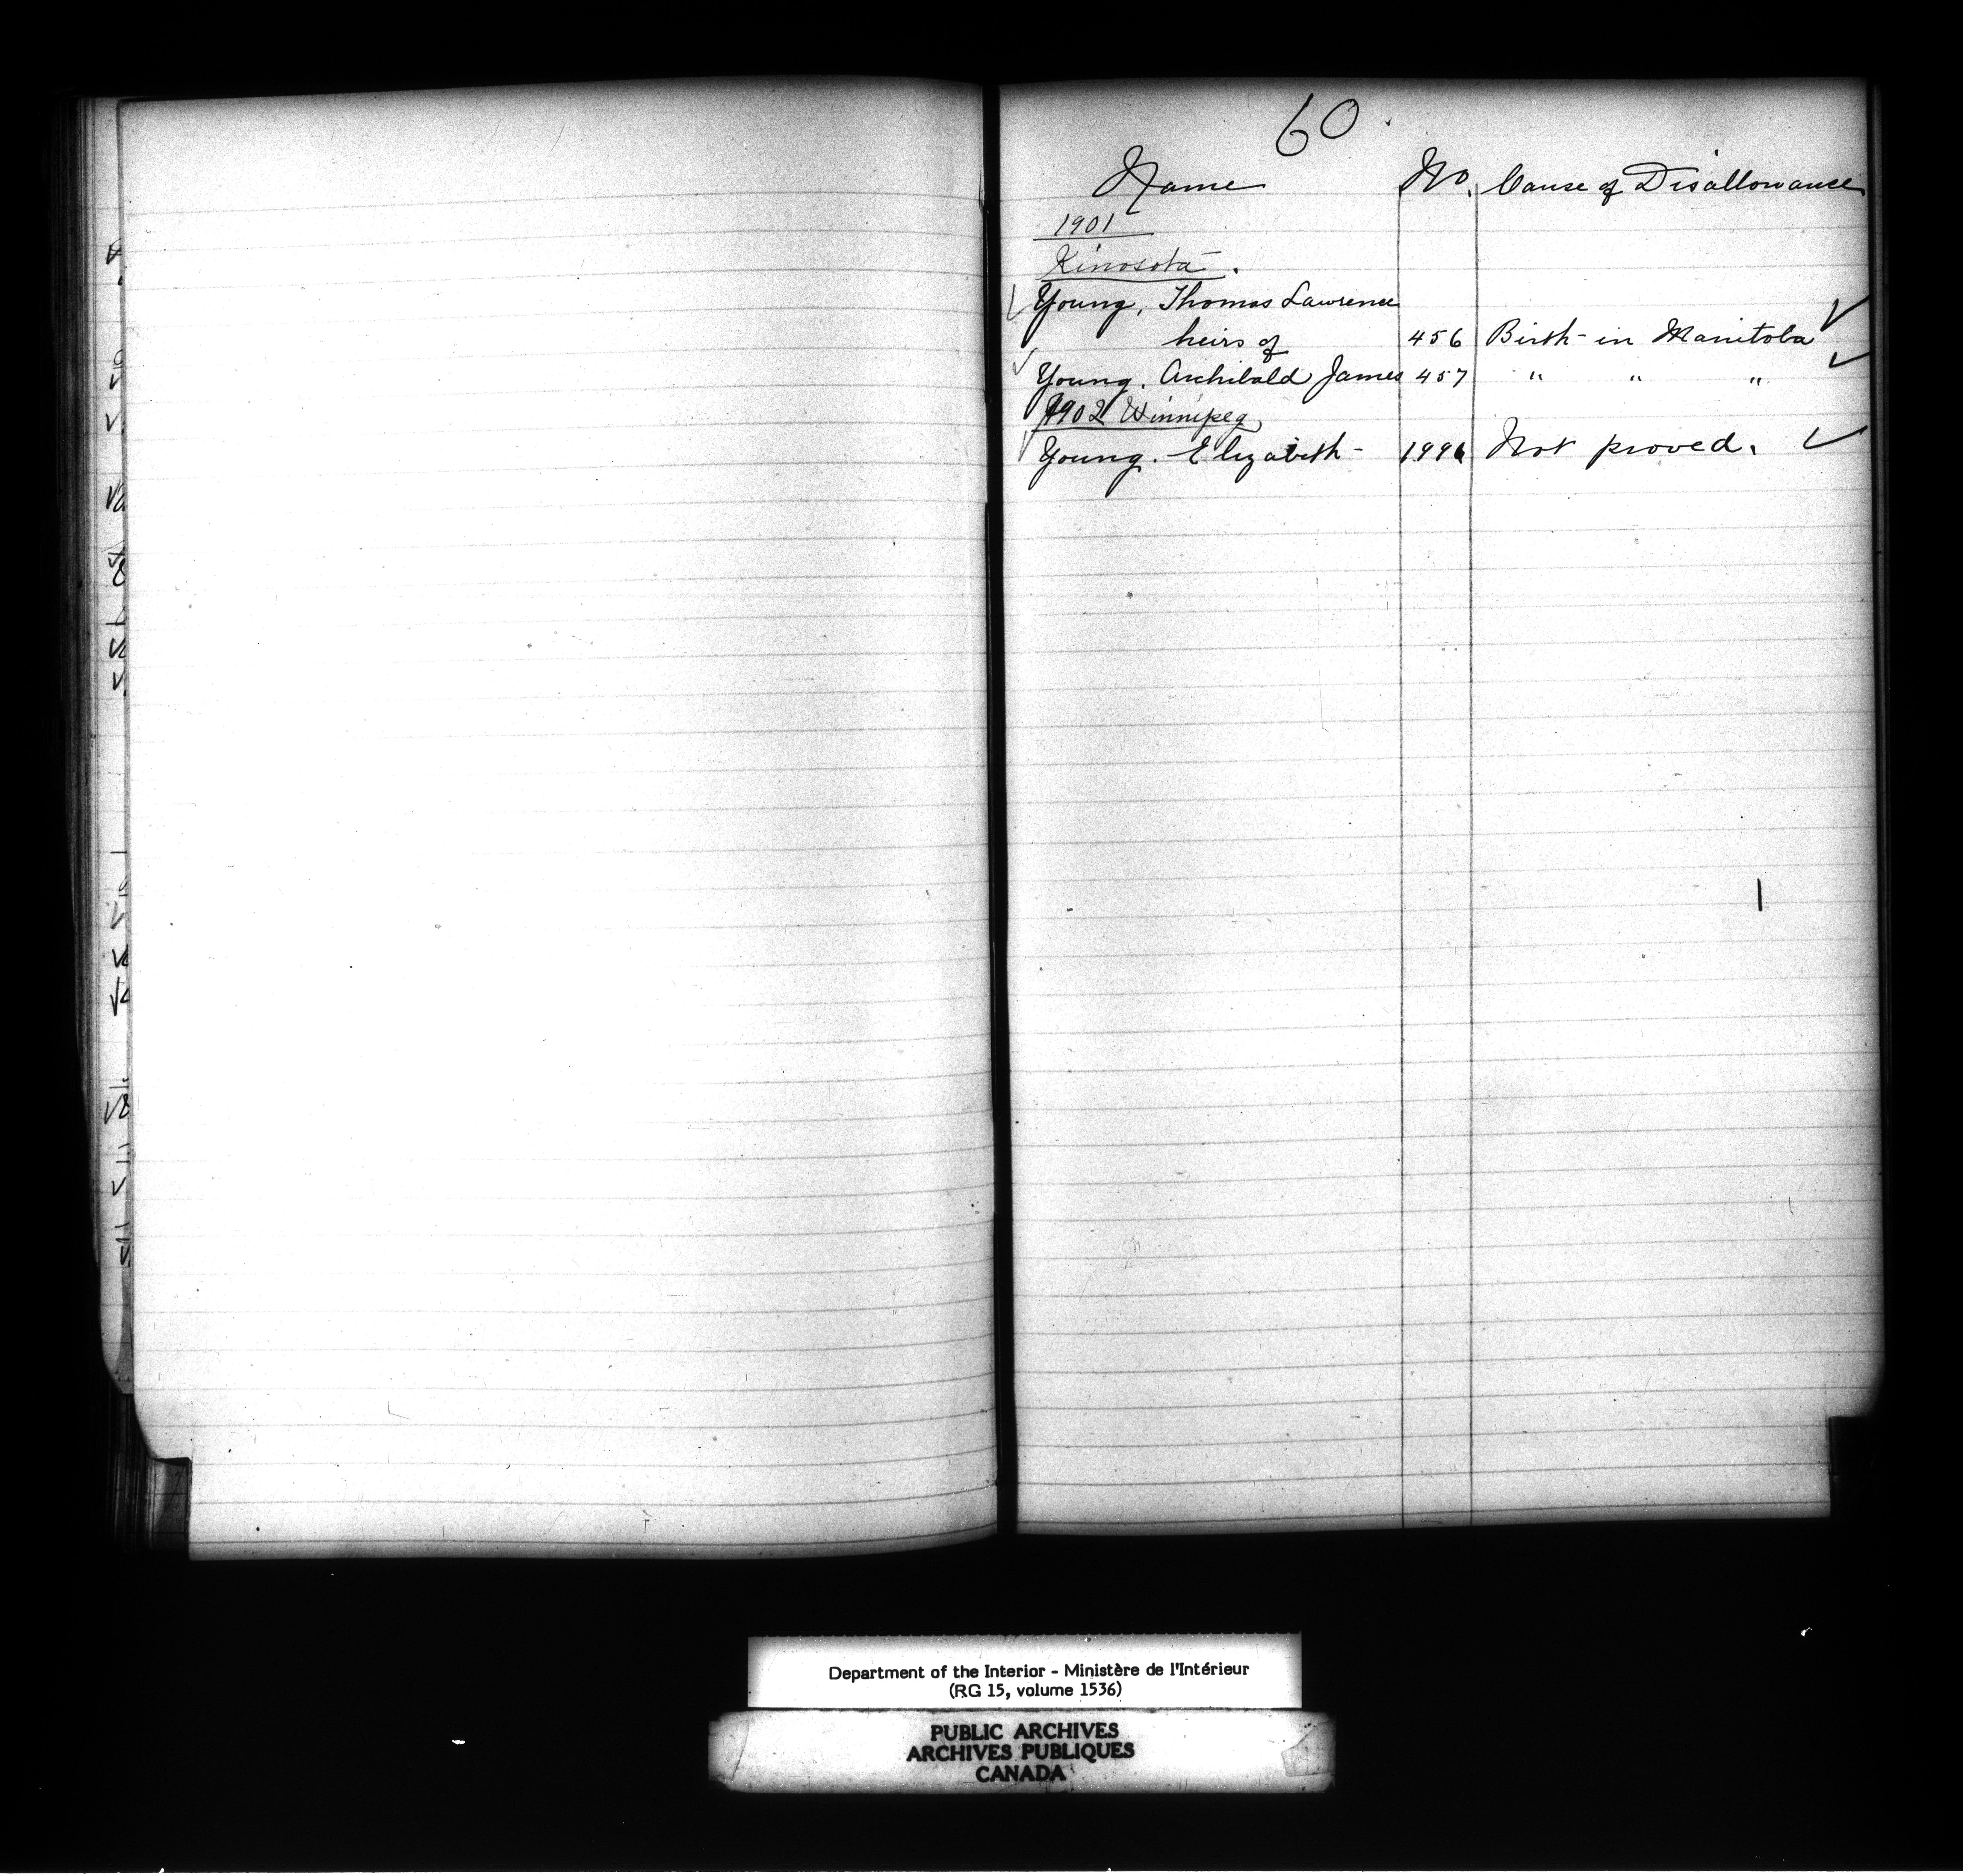 60
Name No. Cause of Disallowance
1901
Kinosota.
✓ Young, Thomas Lawrence
heirs of 456 Birth in Manitoba ✓
✓ Young, Archibald James 457 " " " ✓
1902 Winnipeg
✓ Young. Elizabeth - Not proved. ✓
Department of the Interior - Ministère de l'Intérieur
(RG 15, volume 1536)
PUBLIC ARCHIVES
ARCHIVES PUBLIQUES
CANADA